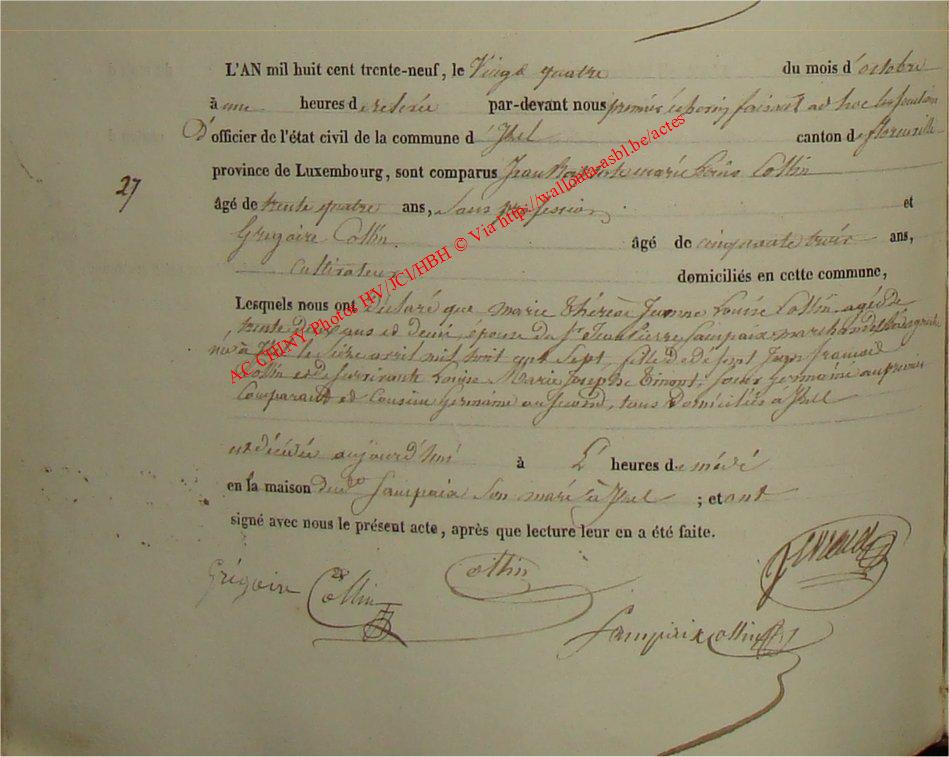 L'AN mil huit cent trente-neuf, le Vingt quatre du mois d'octobre
à une heures de relevée par-devant nous premier échevin faisant ad hoc les fonctions
D'officier de l'état civil de la commune d'Izel canton de florenville
province de Luxembourg, sont comparus Jean marie Louis Collin
27
âgé de trente quatre ans, Sans profession et
Grégoire Collin âgé de cinquante trois ans,
Cultivateur domiciliés en cette commune,
Lesquels nous ont déclaré que marie thérèse Jeanne Louise Collin agée de
trente deux ans et demi, épouse du Sr Jean Pierre Sampaix marchand
née à Izel le avril mil huit cent sept, fille de défunt Jean françois
Collin et de survivante Louise Marie Josephe Tinant, soeur germaine au premier
Comparant et Cousine Germaine au second, tous domiciliés à Izel
est décédée aujourd'hui à heures de
en la maison dudit Sampaix son mari à Izel ; et ont
signé avec nous le présent acte, après que lecture leur en a été faite.
Grégoire Collin
Collin
Sampaix Collin
AC CHINY Photos HV/JCl/HBH © Via http://wallonia-asbl.be/actes